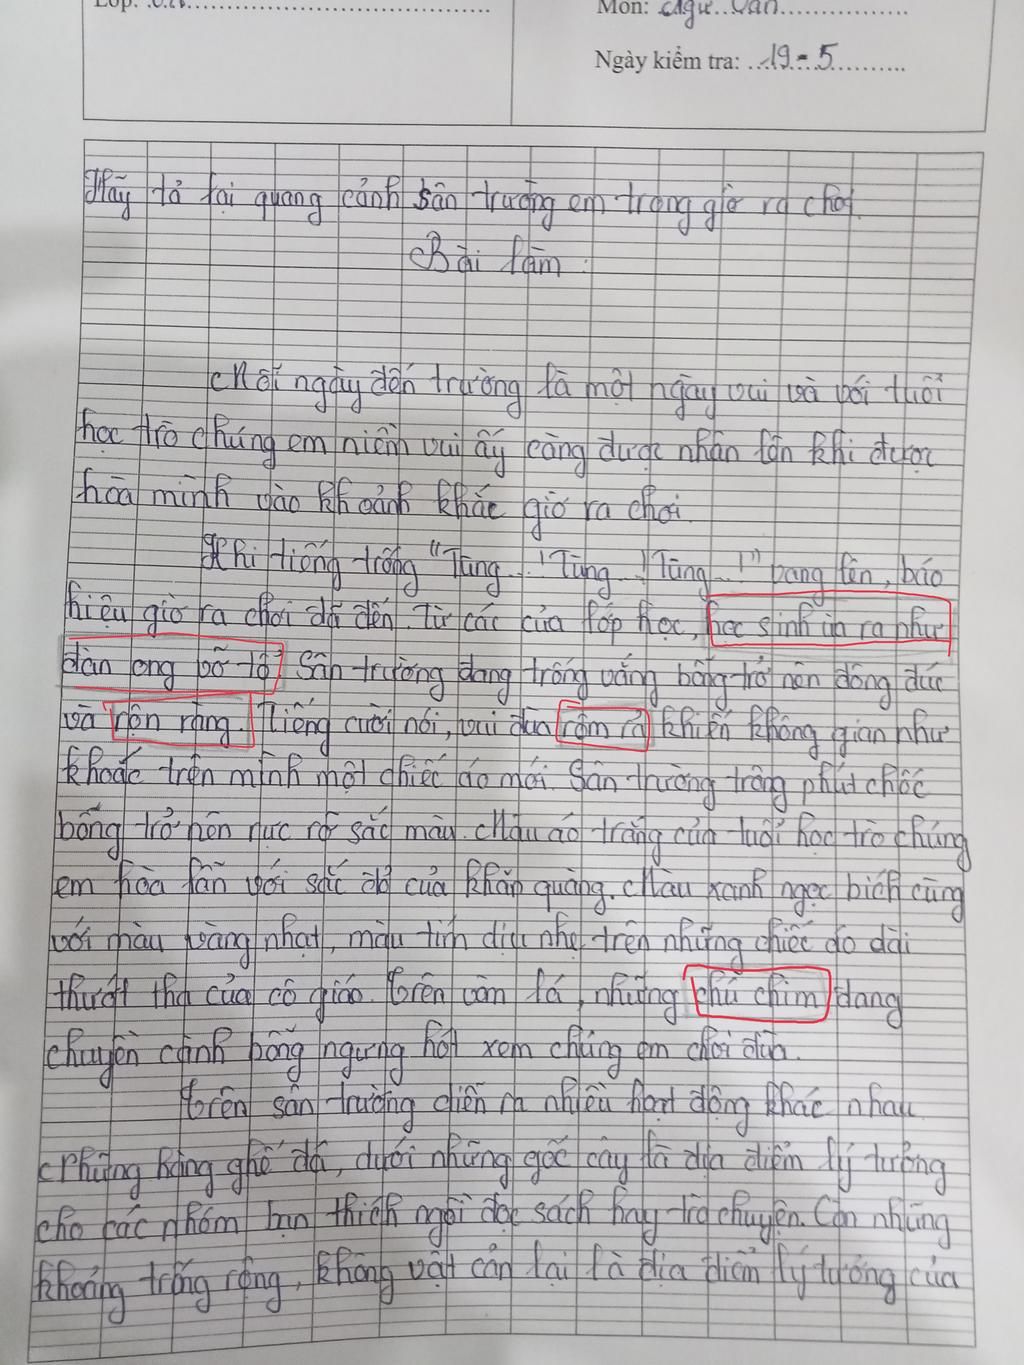 Lớp:
Môn: Ngữ Văn
Ngày kiểm tra: 19-5
Hãy tả lại quang cảnh sân trường em trong giờ ra chơi.
Bài làm
Mỗi ngày đến trường là một ngày vui và với tuổi
học trò chúng em niềm vui ấy càng được nhân lên khi được
hòa mình vào khoảnh khắc giờ ra chơi.
Khi tiếng trống "Tùng...! Tùng...! Tùng...!" vang lên, báo
hiệu giờ ra chơi đã đến. Từ các cửa lớp học, học sinh ùa ra như
đàn ong vỡ tổ. Sân trường đang trống vắng bỗng trở nên đông đúc
và rộn ràng. Tiếng cười nói, vui đùa rôm rả khiến không gian như
khoác trên mình một chiếc áo mới. Sân trường trong phút chốc
bỗng trở nên rực rỡ sắc màu. Màu áo trắng của tuổi học trò chúng
em hòa lẫn với sắc đỏ của khăn quàng. Màu xanh ngọc bích cùng
với màu vàng nhạt, màu tím dịu nhẹ trên những chiếc áo dài
thướt tha của cô giáo. Trên vòm lá, những chú chim đang
chuyền cành bỗng ngưng hót xem chúng em chơi đùa.
Trên sân trường diễn ra nhiều hoạt động khác nhau.
Những băng ghế đá, dưới những gốc cây là địa điểm lý tưởng
cho các nhóm bạn thích ngồi đọc sách hay trò chuyện. Còn những
khoảng trống rộng, không vật cản lại là địa điểm lý tưởng của